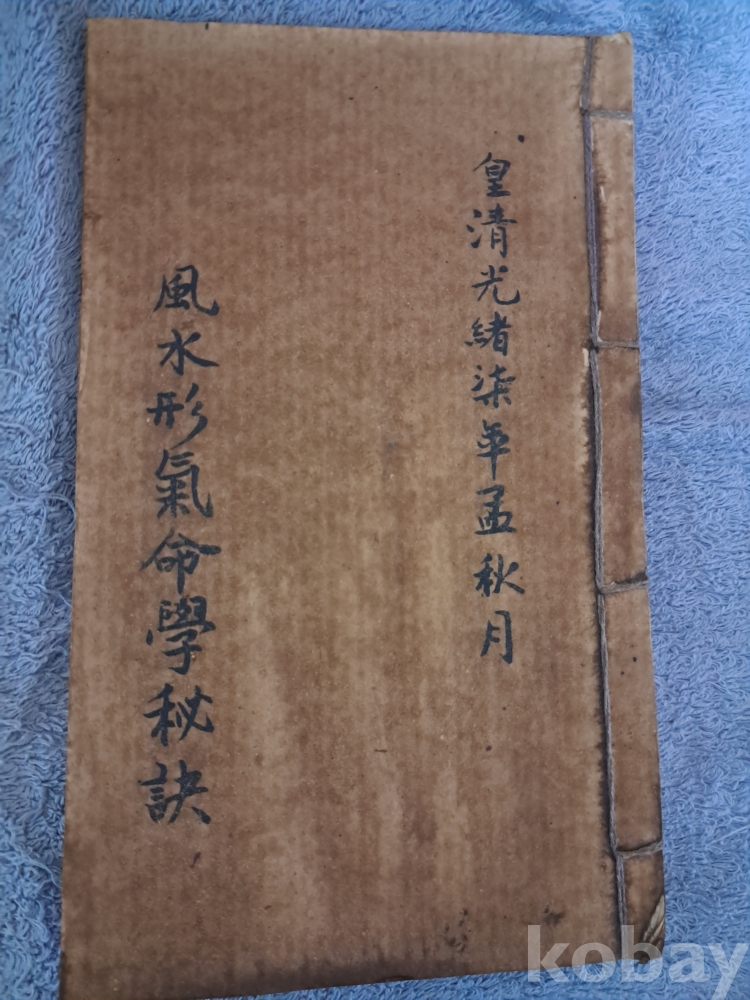 皇清光緒柒年孟秋月
風水形氣命學秘訣
kobay